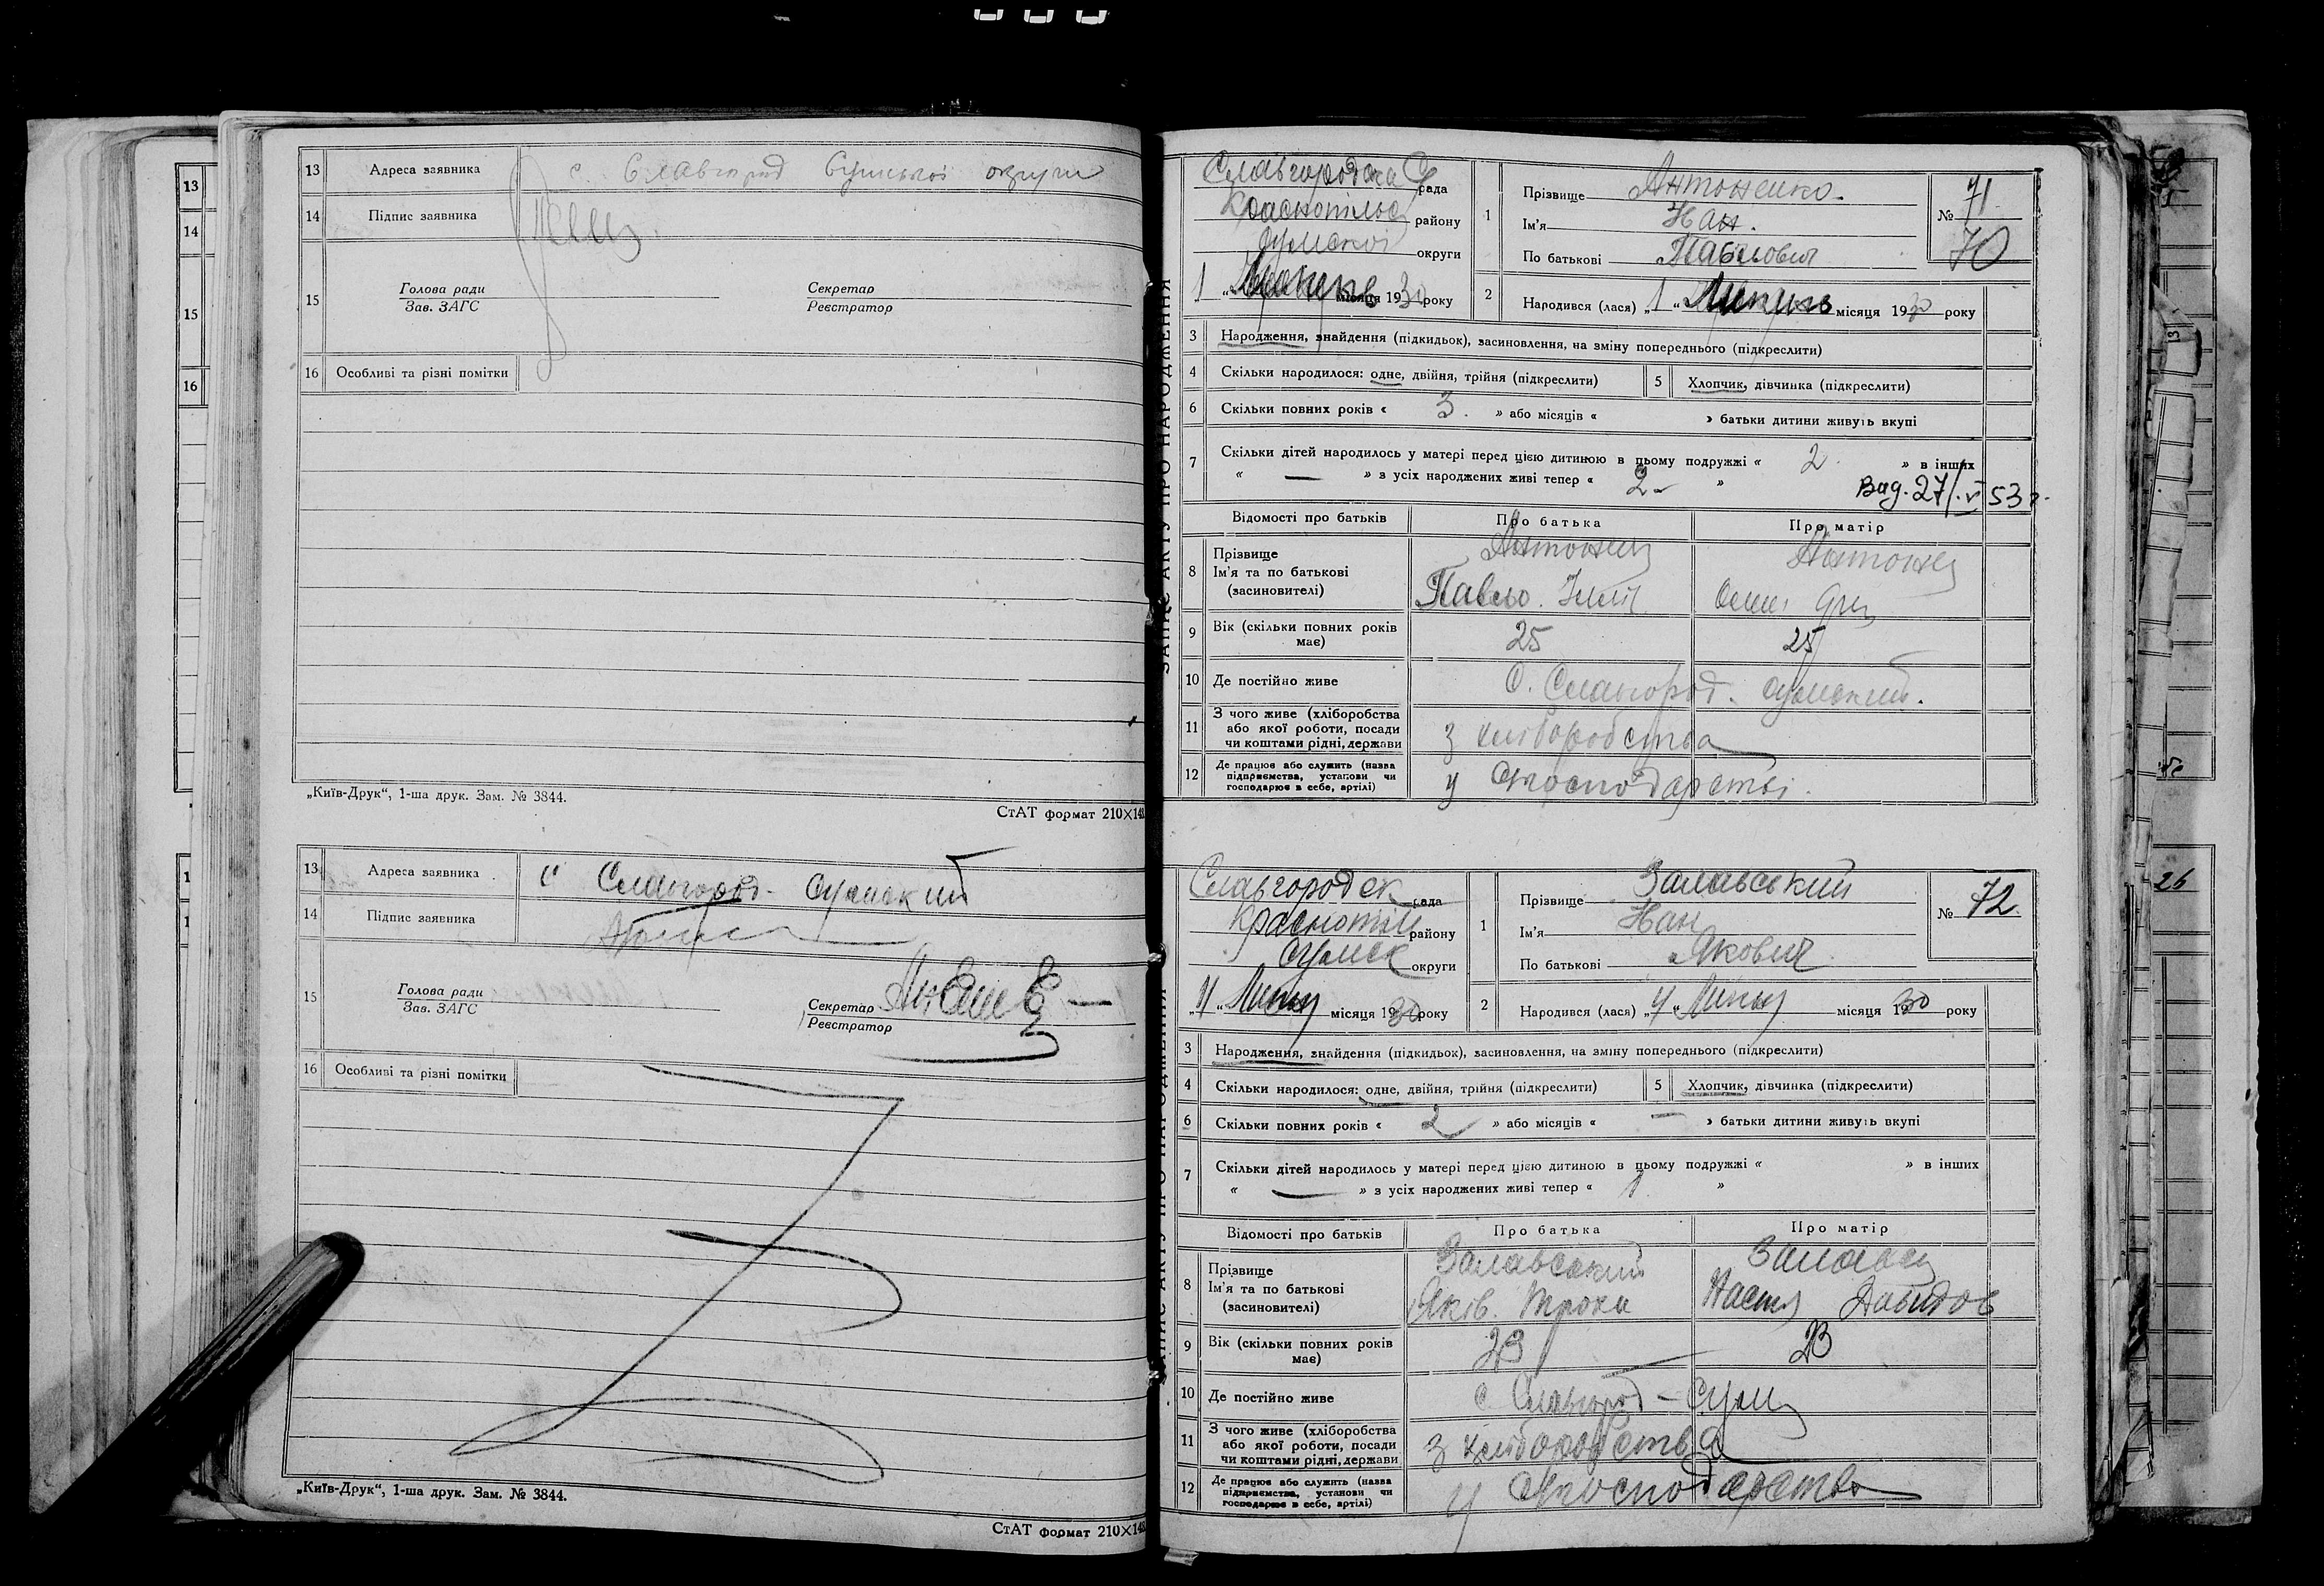 13
14
15
16
13 Адреса заявника с. Славгород Сумської округи
14 Підпис заявника
15 Голова ради Секретар
Зав. ЗАГС Реєстратор
16 Особливі та різні помітки
„Київ-Друк“, 1-ша друк. Зам. № 3844.
СтАТ формат 210×148
13 Адреса заявника с Славгород - Сумский
14 Підпис заявника
15 Голова ради Секретар
Зав. ЗАГС Реєстратор
16 Особливі та різні помітки
„Київ-Друк“, 1-ша друк. Зам. № 3844.
СтАТ формат 210×148
ЗАПИС АКТУ ПРО НАРОДЖЕННЯ
Славгородска рада
Краснопільс району
Сумскої округи
1 „ “ Липень місяця 1930 року
1 Прізвище Антоненко.
Ім'я Іван.
По батькові Павлович
№ 71
70
2 Народився (лася) „1 “ Липень місяця 1930 року
3 Народження, знайдення (підкидьок), засиновлення, на зміну попереднього (підкреслити)
4 Скільки народилося: одне, двійня, трійня (підкреслити) 5 Хлопчик, дівчинка (підкреслити)
6 Скільки повних років « 3. » або місяців « » батьки дитини живуть вкупі
7 Скільки дітей народилось у матері перед цією дитиною в цьому подружжі « 2 » в інших
« — » з усіх народжених живі тепер « 2 - »
Выд. 27/V 53 г.
Відомості про батьків Про батька Про матір
8 Прізвище Антонен Антоне
Ім'я та по батькові
(засиновителі) Павло
9 Вік (скільки повних років має) 25 25
10 Де постійно живе С. Славгород. Сумский.
11 З чого живе (хліборобства або якої роботи, посади чи коштами рідні, держави з хліборобства
12 Де працює або служить (назва підприємства, установи чи господарює в себе, артілі) у господарстві.
ЗАПИС АКТУ ПРО НАРОДЖЕННЯ
Славгородск рада
Краснопіл району
Сумск округи
„4 “ Липня місяця 1930 року
1 Прізвище Залавський
Ім'я Іван
По батькові Якович
№ 72.
2 Народився (лася) „4 “ Липня місяця 1930 року
3 Народження, знайдення (підкидьок), засиновлення, на зміну попереднього (підкреслити)
4 Скільки народилося: одне, двійня, трійня (підкреслити) 5 Хлопчик, дівчинка (підкреслити)
6 Скільки повних років « 2 » або місяців « — » батьки дитини живуть вкупі
7 Скільки дітей народилось у матері перед цією дитиною в цьому подружжі « » в інших
« — » з усіх народжених живі тепер « 1. »
Відомості про батьків Про батька Про матір
8 Прізвище Залавський Залавс
Ім'я та по батькові
(засиновителі) Яків. Трохи Настя Давидов
9 Вік (скільки повних років має) 23 23
10 Де постійно живе с. Славгород - Сумы
11 З чого живе (хліборобства або якої роботи, посади чи коштами рідні, держави з хліборобства
12 Де працює або служить (назва підприємства, установи чи господарює в себе, артілі) у господарства
26